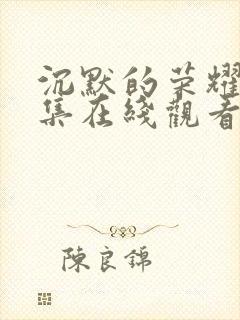 沉默的荣耀
集在綫觀看
陳良錦